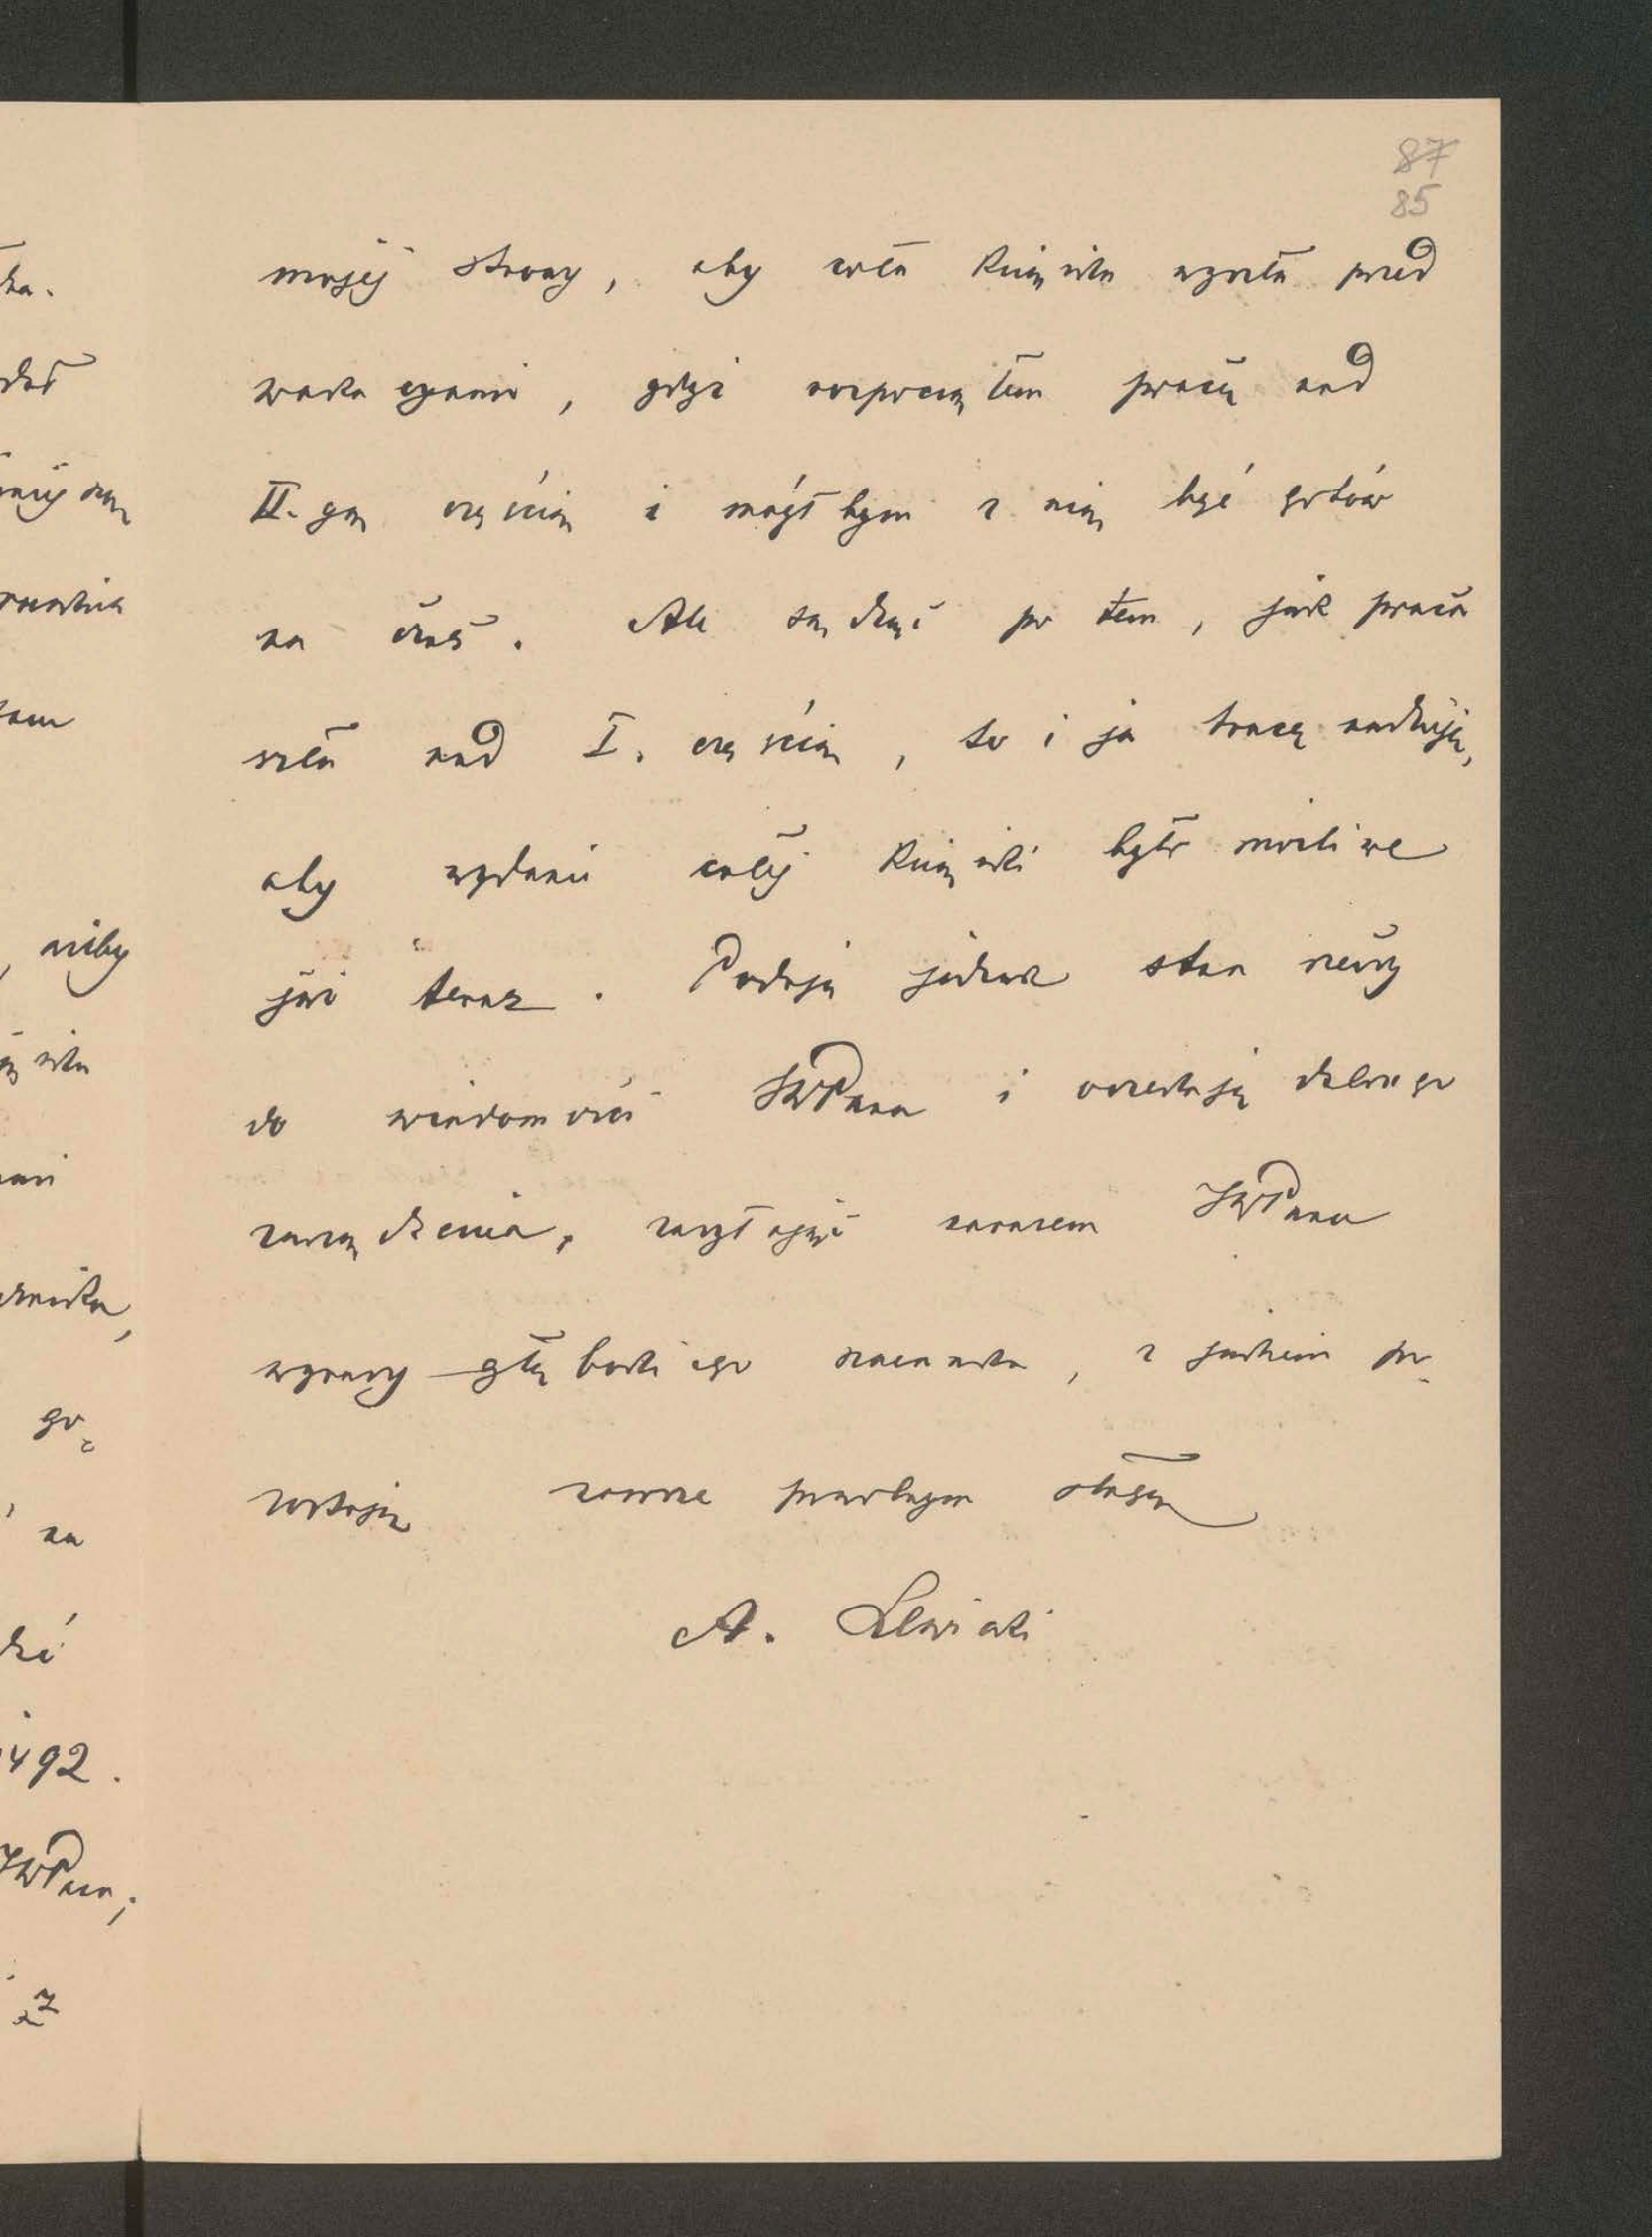 87
85
mojej strony, aby cała książka wyszła przed
wakacyami, gdyż rozpocząłem pracę nad
II-gą częścią i mógłbym z nią być gotów
na czas. Ale sądząc po tem, jak praca
szła nad I. częścią, to i ja tracę nadzieję,
aby wydanie całej książki było możliwe
już teraz. Podaję jednak stan rzeczy
do wiadomości JWPana i oczekuję dalszego
zarządzenia, załączając zarazem JWPanu
wyrazy głębokiego szacunku, z jakiem po-
zostaję zawsze powolnym sługą
A. Lewicki
ka.
niby
go=
na
1492.
JWPana;